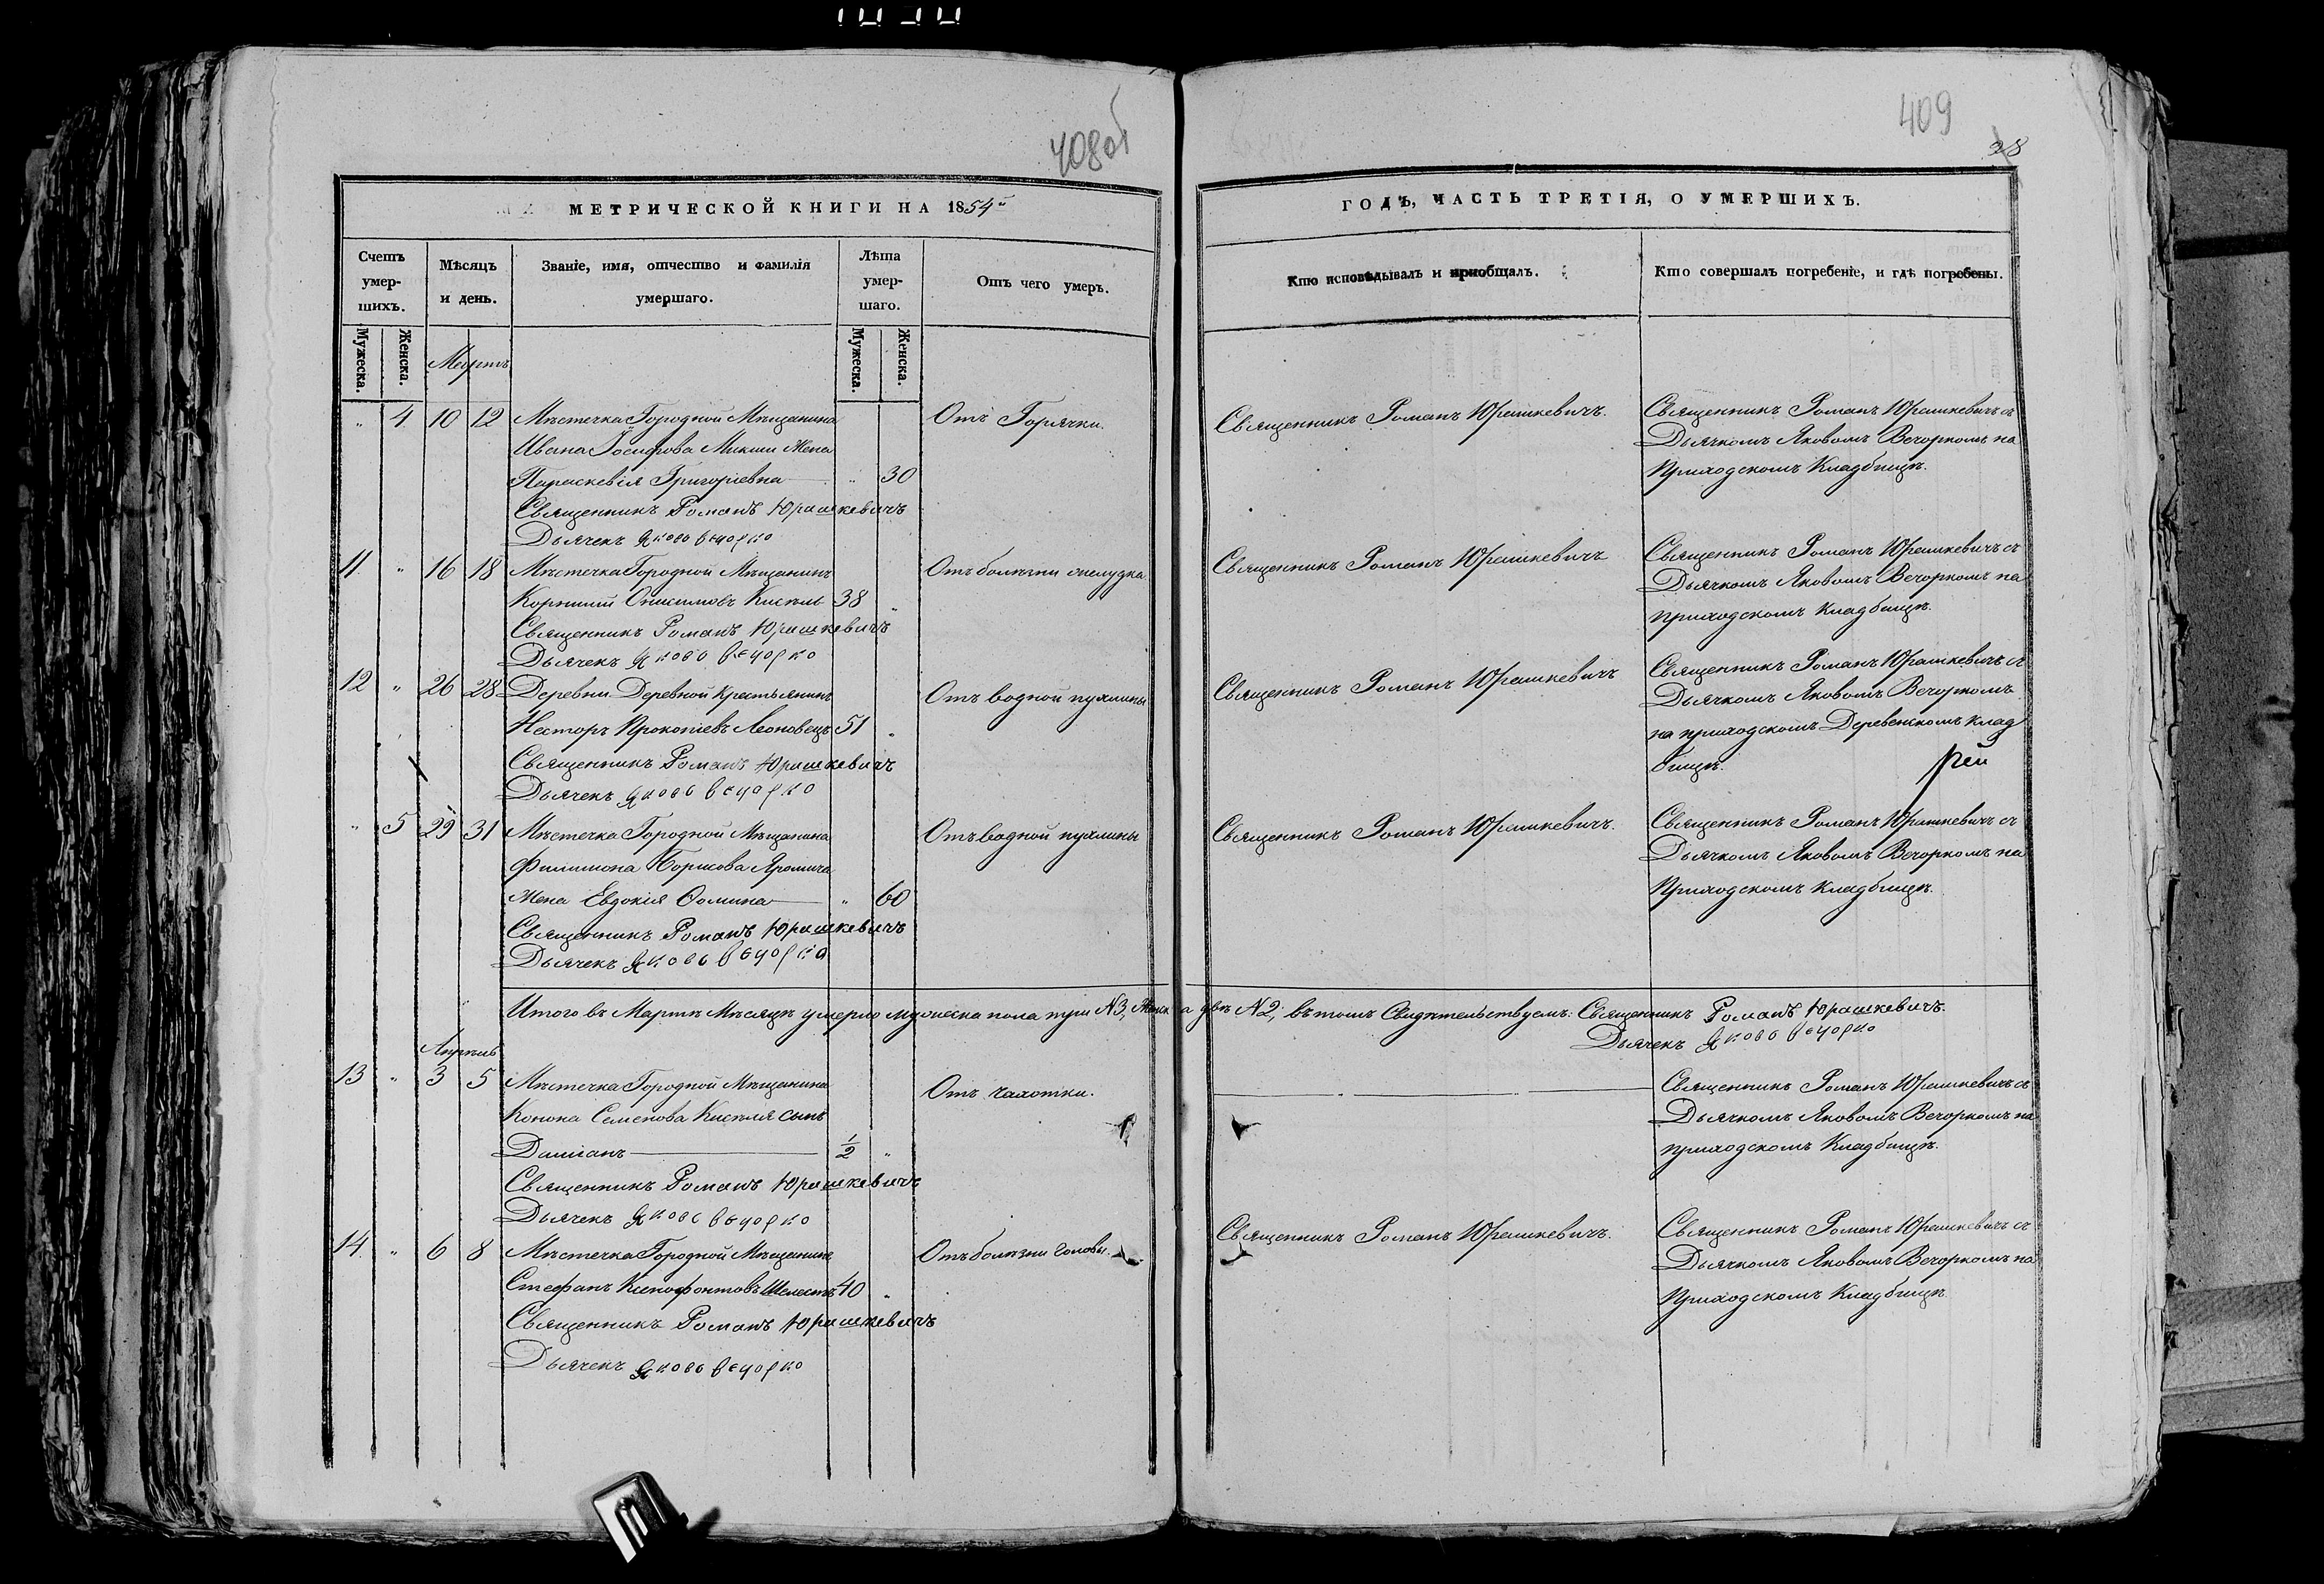 408об
409
28
МЕТРИЧЕСКОЙ КНИГИ НА 1854й
ГОДЪ, ЧАСТЬ ТРЕТІЯ, О УМЕРШИХЪ.
Счетъ умер-шихъ.
Мужеска.
Женска.
Мѣсяцъ и день.
Званіе, имя, отчество и фамилія умершаго.
Лѣта умер-шаго.
Мужеска.
Женска.
Отъ чего умеръ.
Кто исповѣдывалъ и пріобщалъ.
Кто совершалъ погребеніе, и гдѣ погребены.
Мартъ
" 4 10 12 Мѣстечка Городной Мѣщанина
Ивана Іосифова Микши Жена
Параскевія Григоріевна " 30
Отъ Горячки.
Священникъ Романъ Юрашкевичъ.
Священникъ Романъ Юрашкевичъ съ
Дьячкомъ Яковомъ Вечоркомъ на
Приходскомъ Кладбищѣ.
Священникъ Романъ Юрашкевичъ
Дьячекъ Яковъ Вечорко
11. " 16 18 Мѣстечка Городной Мѣщанинъ
Корнилій Онисимовъ Кисель 38 "
Отъ болѣзни желудка
Священникъ Романъ Юрашкевичъ
Священникъ Романъ Юрашкевичъ съ
Дьячкомъ Яковомъ Вечоркомъ на
приходскомъ Кладбищѣ.
Священникъ Романъ Юрашкевичъ
Дьячекъ Яковъ Вечорко
12 " 26 28 Деревни Деревной Крестьянинъ
Несторъ Прокопіевъ Леоновецъ 51 "
Отъ водной пухлины
Священникъ Романъ Юрашкевичъ
Священникъ Романъ Юрашкевичъ съ
Дьячкомъ Яковомъ Вечоркомъ
на приходскомъ Деревенскомъ клад
бищѣ.
Священникъ Романъ Юрашкевичъ
Дьячекъ Яковъ Вечорко
" 5 29 31 Мѣстечка Городной Мѣщанина
Филимона Борисова Яромича
Жена Евдокія Фомина " 60
Отъ водной пухлины
Священникъ Романъ Юрашкевичъ.
Священникъ Романъ Юрашкевичъ съ
Дьячкомъ Яковомъ Вечоркомъ на
Приходскомъ Кладбищѣ.
Священникъ Романъ Юрашкевичъ
Дьячекъ Яковъ Вечорко
Итого въ Мартѣ Мѣсяцѣ умерло мужеска пола три N 3, Женска двѣ N 2, въ томъ Свидѣтельствуемъ: Священникъ Романъ Юрашкевичъ.
Дьячекъ Яковъ Вечорко
Апрѣль
13 " 3 5 Мѣстечка Городной Мѣщанина
Конона Семенова Киселя сынъ
Даміанъ 1/2 "
Отъ чахотки.
Священникъ Романъ Юрашкевичъ съ
Дьячкомъ Яковомъ Вечоркомъ на
приходскомъ Кладбищѣ.
Священникъ Романъ Юрашкевичъ
Дьячекъ Яковъ Вечорко
14. " 6 8 Мѣстечка Городной Мѣщанинъ
Стефанъ Ксенофонтовъ Шелестъ 40 "
Отъ болѣзни головы.
Священникъ Романъ Юрашкевичъ.
Священникъ Романъ Юрашкевичъ съ
Дьячкомъ Яковомъ Вечоркомъ на
Приходскомъ Кладбищѣ
Священникъ Романъ Юрашкевичъ
Дьячекъ Яковъ Вечорко